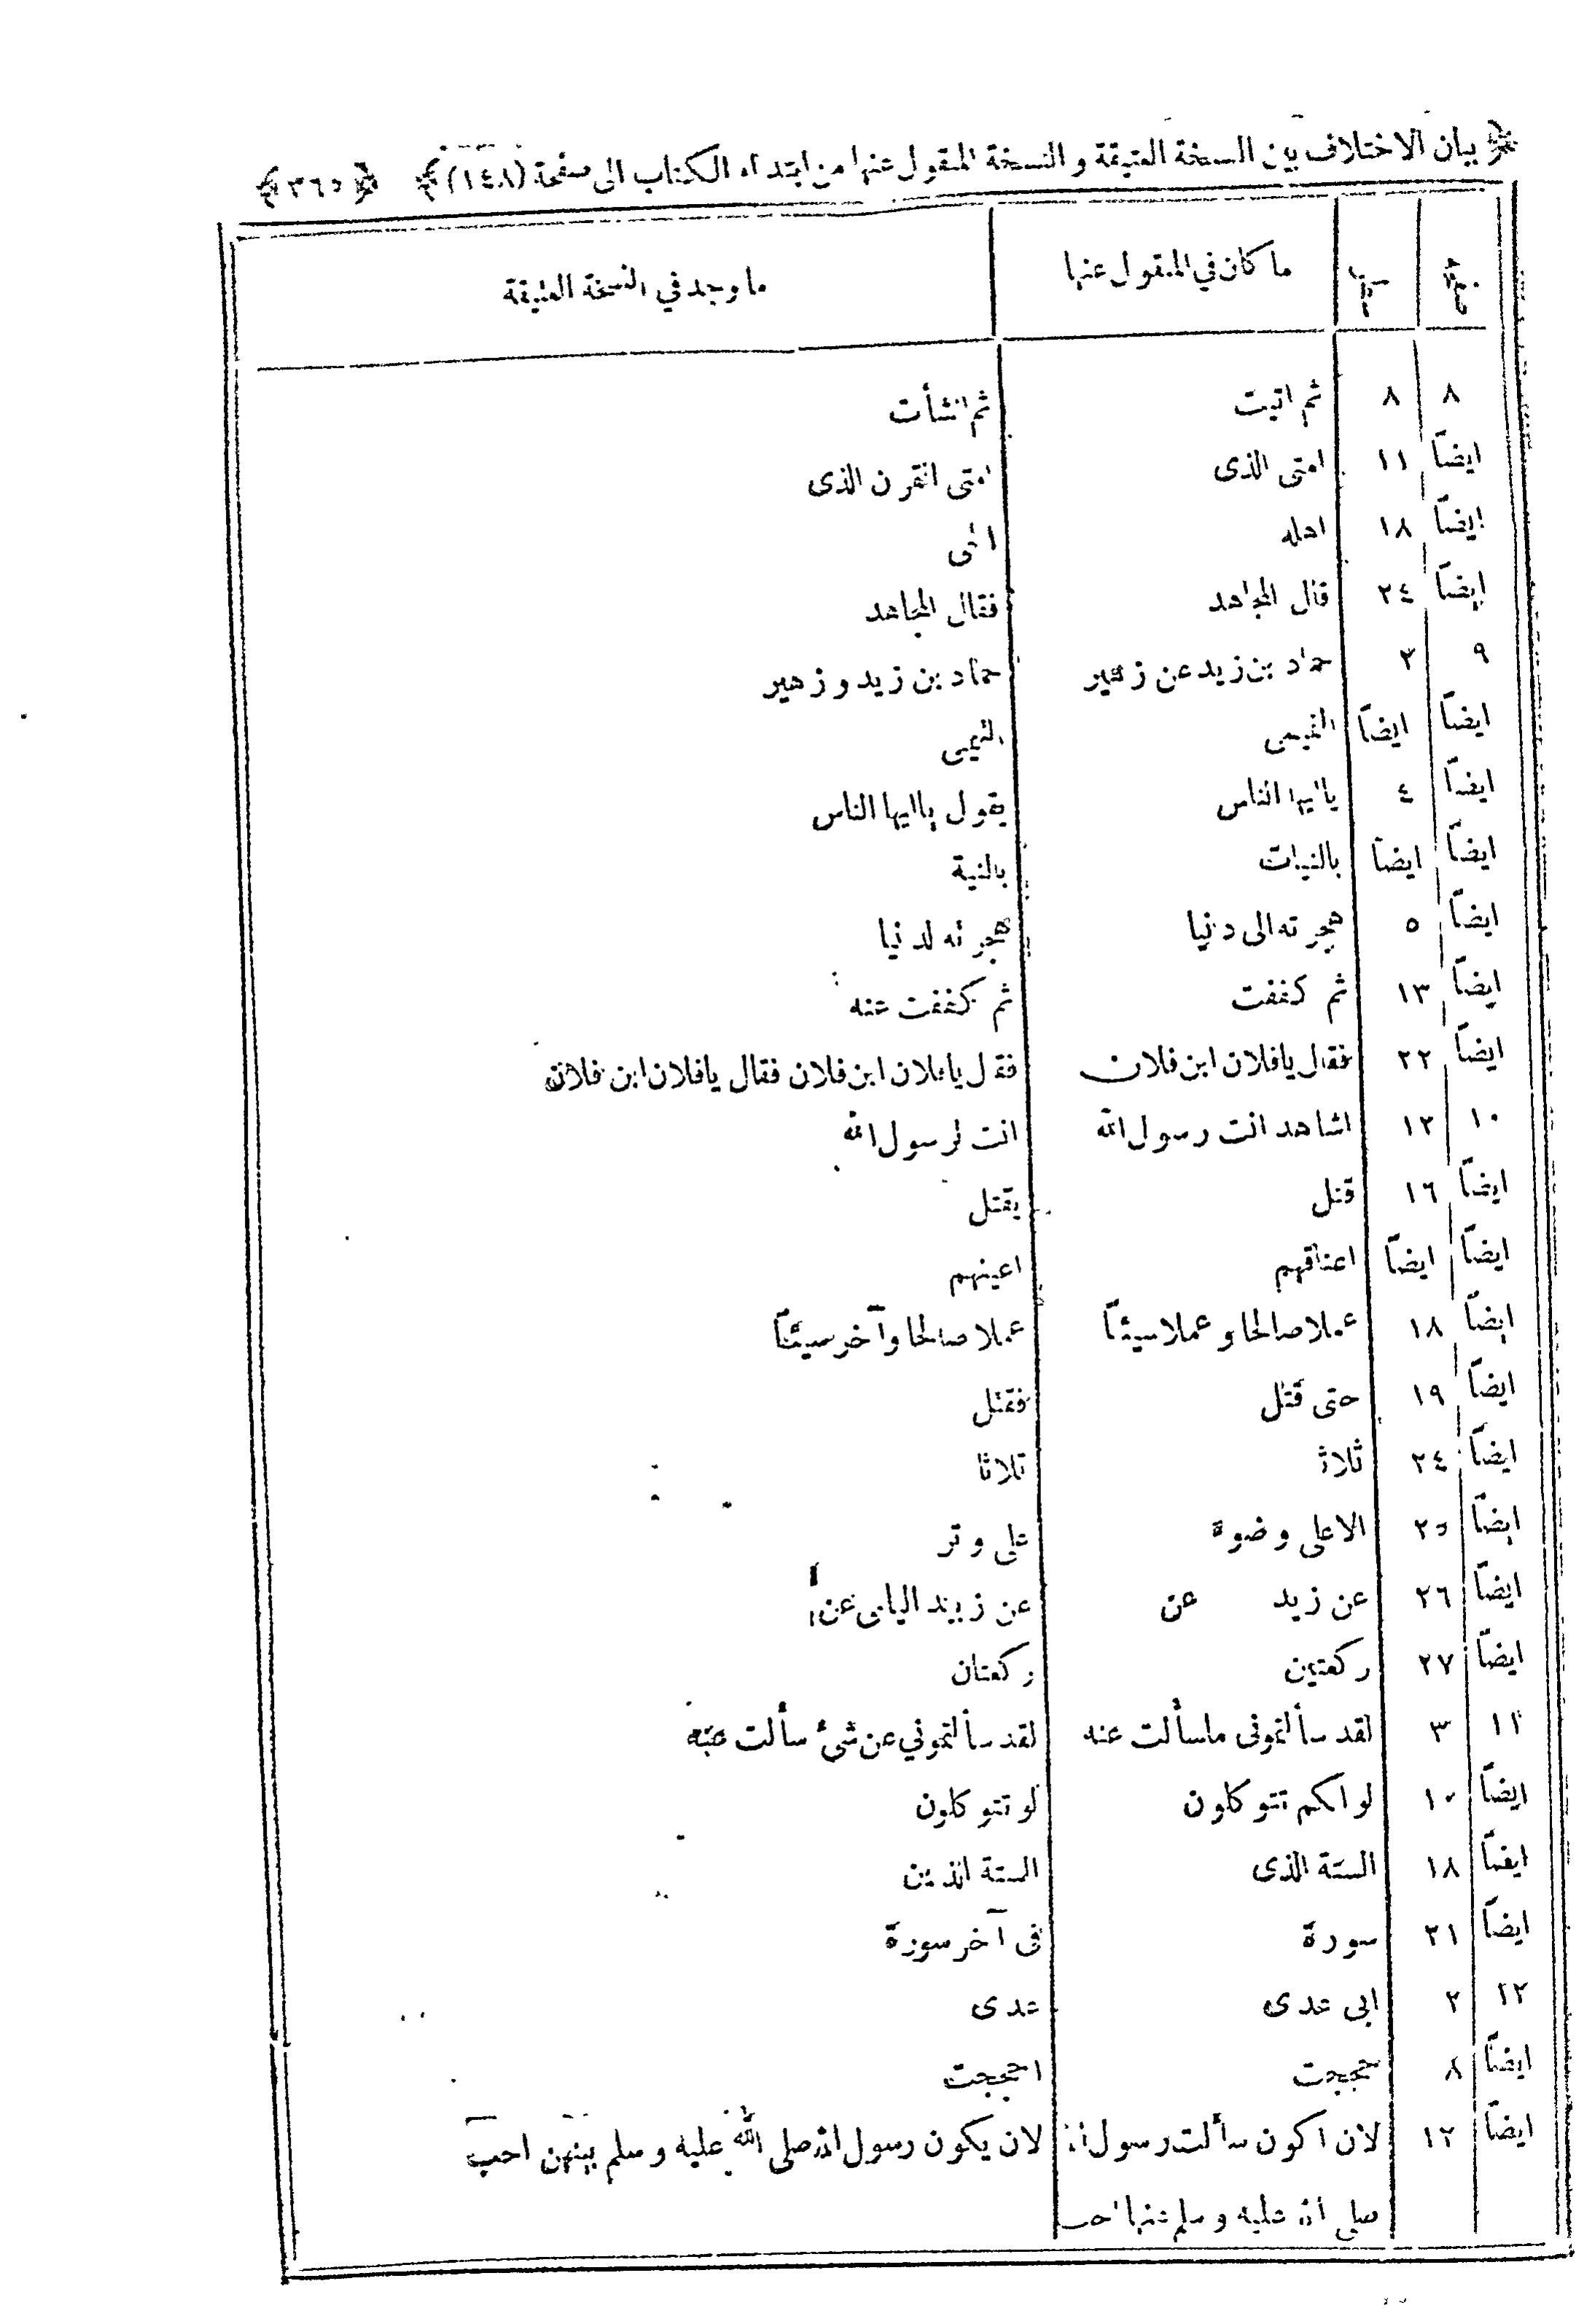 بيان الاختلاف بين النسخة العتيقة و النسخة المنقول عنها من ابتداء الكتاب الى صفحة (١٤٨) ﴿٣٦٥﴾
صفحه سطر ما كان في المنقول عنها ما وجد في النسخة العتيقة
٨ ٨ ثم اتيت ثم انشأت
ايضاً ١١ امتى الذى امتى القرن الذى
ايضاً ١٨ اهله انى
ايضاً ٢٤ قال المجاهد فقال المجاهد
٩ ٢ حماد بن زيد عن زهير حماد بن زيد و زهير
ايضاً ايضاً التيمى
ايضاً ٤ يا ايها الناس يقول يا ايها الناس
ايضاً ايضاً بالنيات بالنية
ايضاً ٥ هجرته الى دنيا هجرته لدنيا
ايضاً ١٣ ثم كففت ثم كففت عنه
ايضاً ٢٢ فقال يافلان ابن فلان فقال يافلان ابن فلان فقال يافلان ابن فلان
١٠ ١٢ اشاهد انت رسول الله انت لرسول الله
ايضاً ١٦ قتل يقتل
ايضاً ايضاً اعناقهم اعينهم
ايضاً ١٨ عملا صالحا و عملا سيئاً عملا صالحا و آخر سيئاً
ايضاً ١٩ حتى قتل فقتل
ايضاً ٢٤ ثلاث ثلاثا
ايضاً ٢٥ الاعلى وضوء على وتر
ايضاً ٢٦ عن زيد عن عن زبيد اليامى عن
ايضاً ٢٧ ركعتين ركعتان
١١ ٣ لقد سألتمونى ماسألت عنه لقد سألتموني عن شىء سألت عنه
ايضاً ١٠ لو انكم تتوكلون لو تتوكلون
ايضاً ١٨ الستة الذى الستة الذين
ايضاً ٢١ سورة فى آخر سورة
١٢ ٢ ابى عدى عدى
ايضاً ٨ حججت احججت
ايضاً ١٢ لان اكون سألت رسول الله لان يكون رسول الله صلى الله عليه و سلم بينهن احب
صلى الله عليه و سلم عنها احب